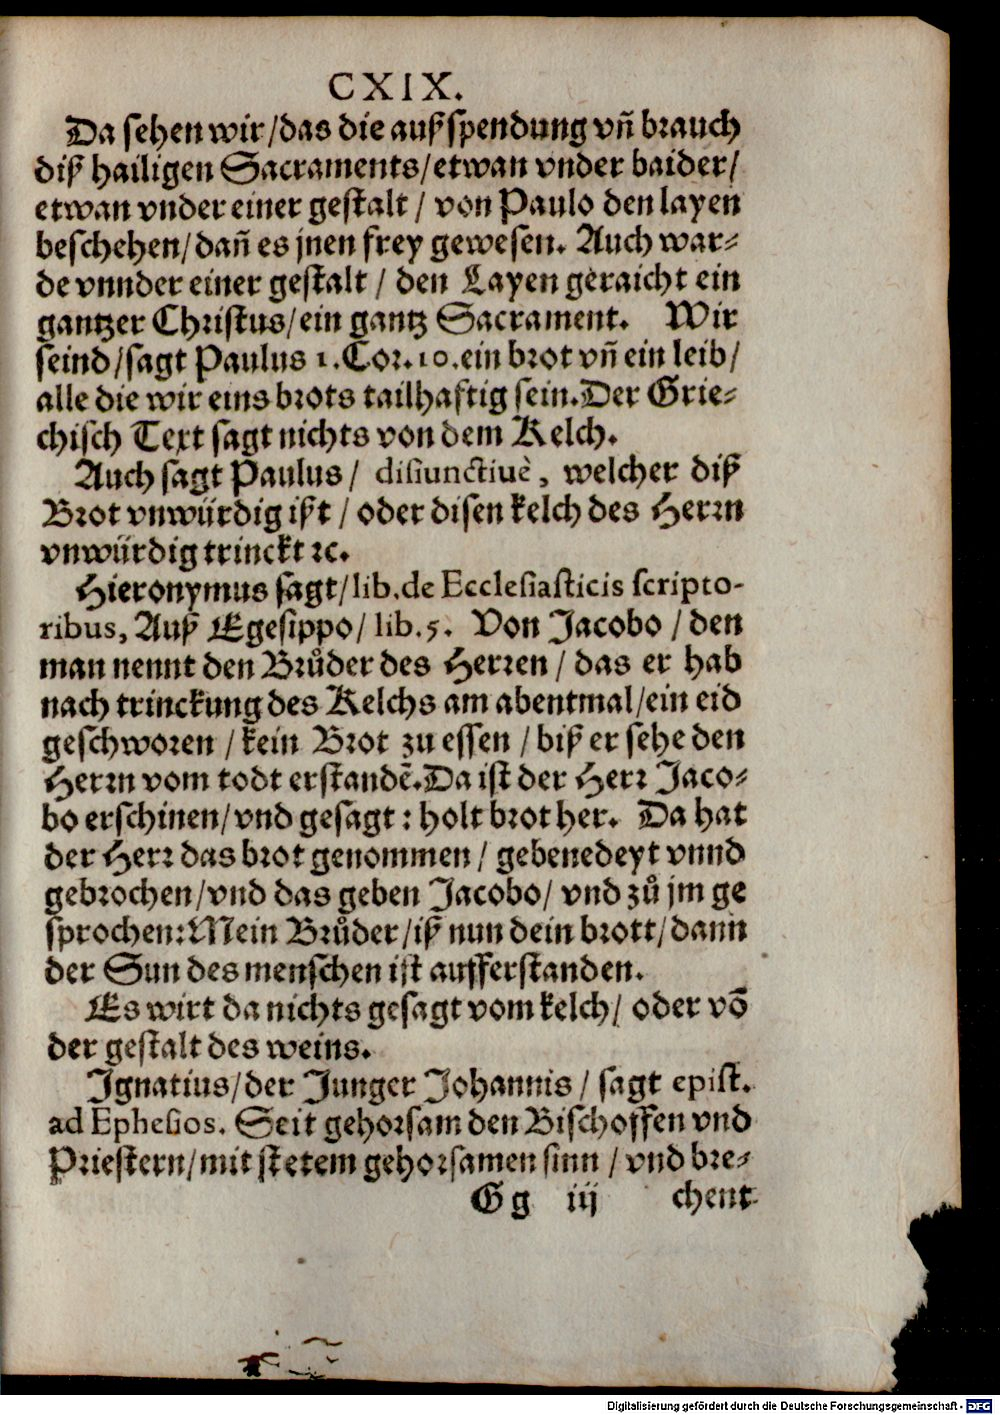 CXIX.
Da sehen wir/das die außspendung vn̄ brauch
diß hailigen Sacraments/etwan vnder baider/
etwan vnder einer gestalt / von Paulo den layen
beschehen/dan̄ es jnen frey gewesen. Auch war-
de vnnder einer gestalt / den Layen geraicht ein
gantzer Christus/ein gantz Sacrament. Wir
seind/sagt Paulus 1.Cor.10.ein brot vn̄ ein leib/
alle die wir eins brots tailhaftig sein.Der Grie-
chisch Text sagt nichts von dem Kelch.
Auch sagt Paulus / disiunctiuè, welcher diß
Brot vnwürdig ißt / oder disen kelch des Herrn
vnwürdig trinckt ꝛc.
Hieronymus sagt/lib.de Ecclesiasticis scripto-
ribus, Auß Egesippo/ lib.5. Von Jacobo / den
man nennt den Brůder des Herren / das er hab
nach trinckung des Kelchs am abentmal/ein eid
geschworen / kein Brot zu essen / biß er sehe den
Herrn vom todt erstandē.Da ist der Herr Jaco-
bo erschinen/vnd gesagt : holt brot her. Da hat
der Herr das brot genommen / gebenedeyt vnnd
gebrochen/vnd das geben Jacobo/ vnd zů jm ge
sprochen:Mein Brůder/iß nun dein brott/dann
der Sun des menschen ist aufferstanden.
Es wirt da nichts gesagt vom kelch/ oder vō
der gestalt des weins.
Ignatius/der Junger Johannis / sagt epist.
ad Ephesios. Seit gehorsam den Bischoffen vnd
Priestern/mit stetem gehorsamen sinn / vnd bre-
Gg iij chent
Digitalisierung gefördert durch die Deutsche Forschungsgemeinschaft - DFG